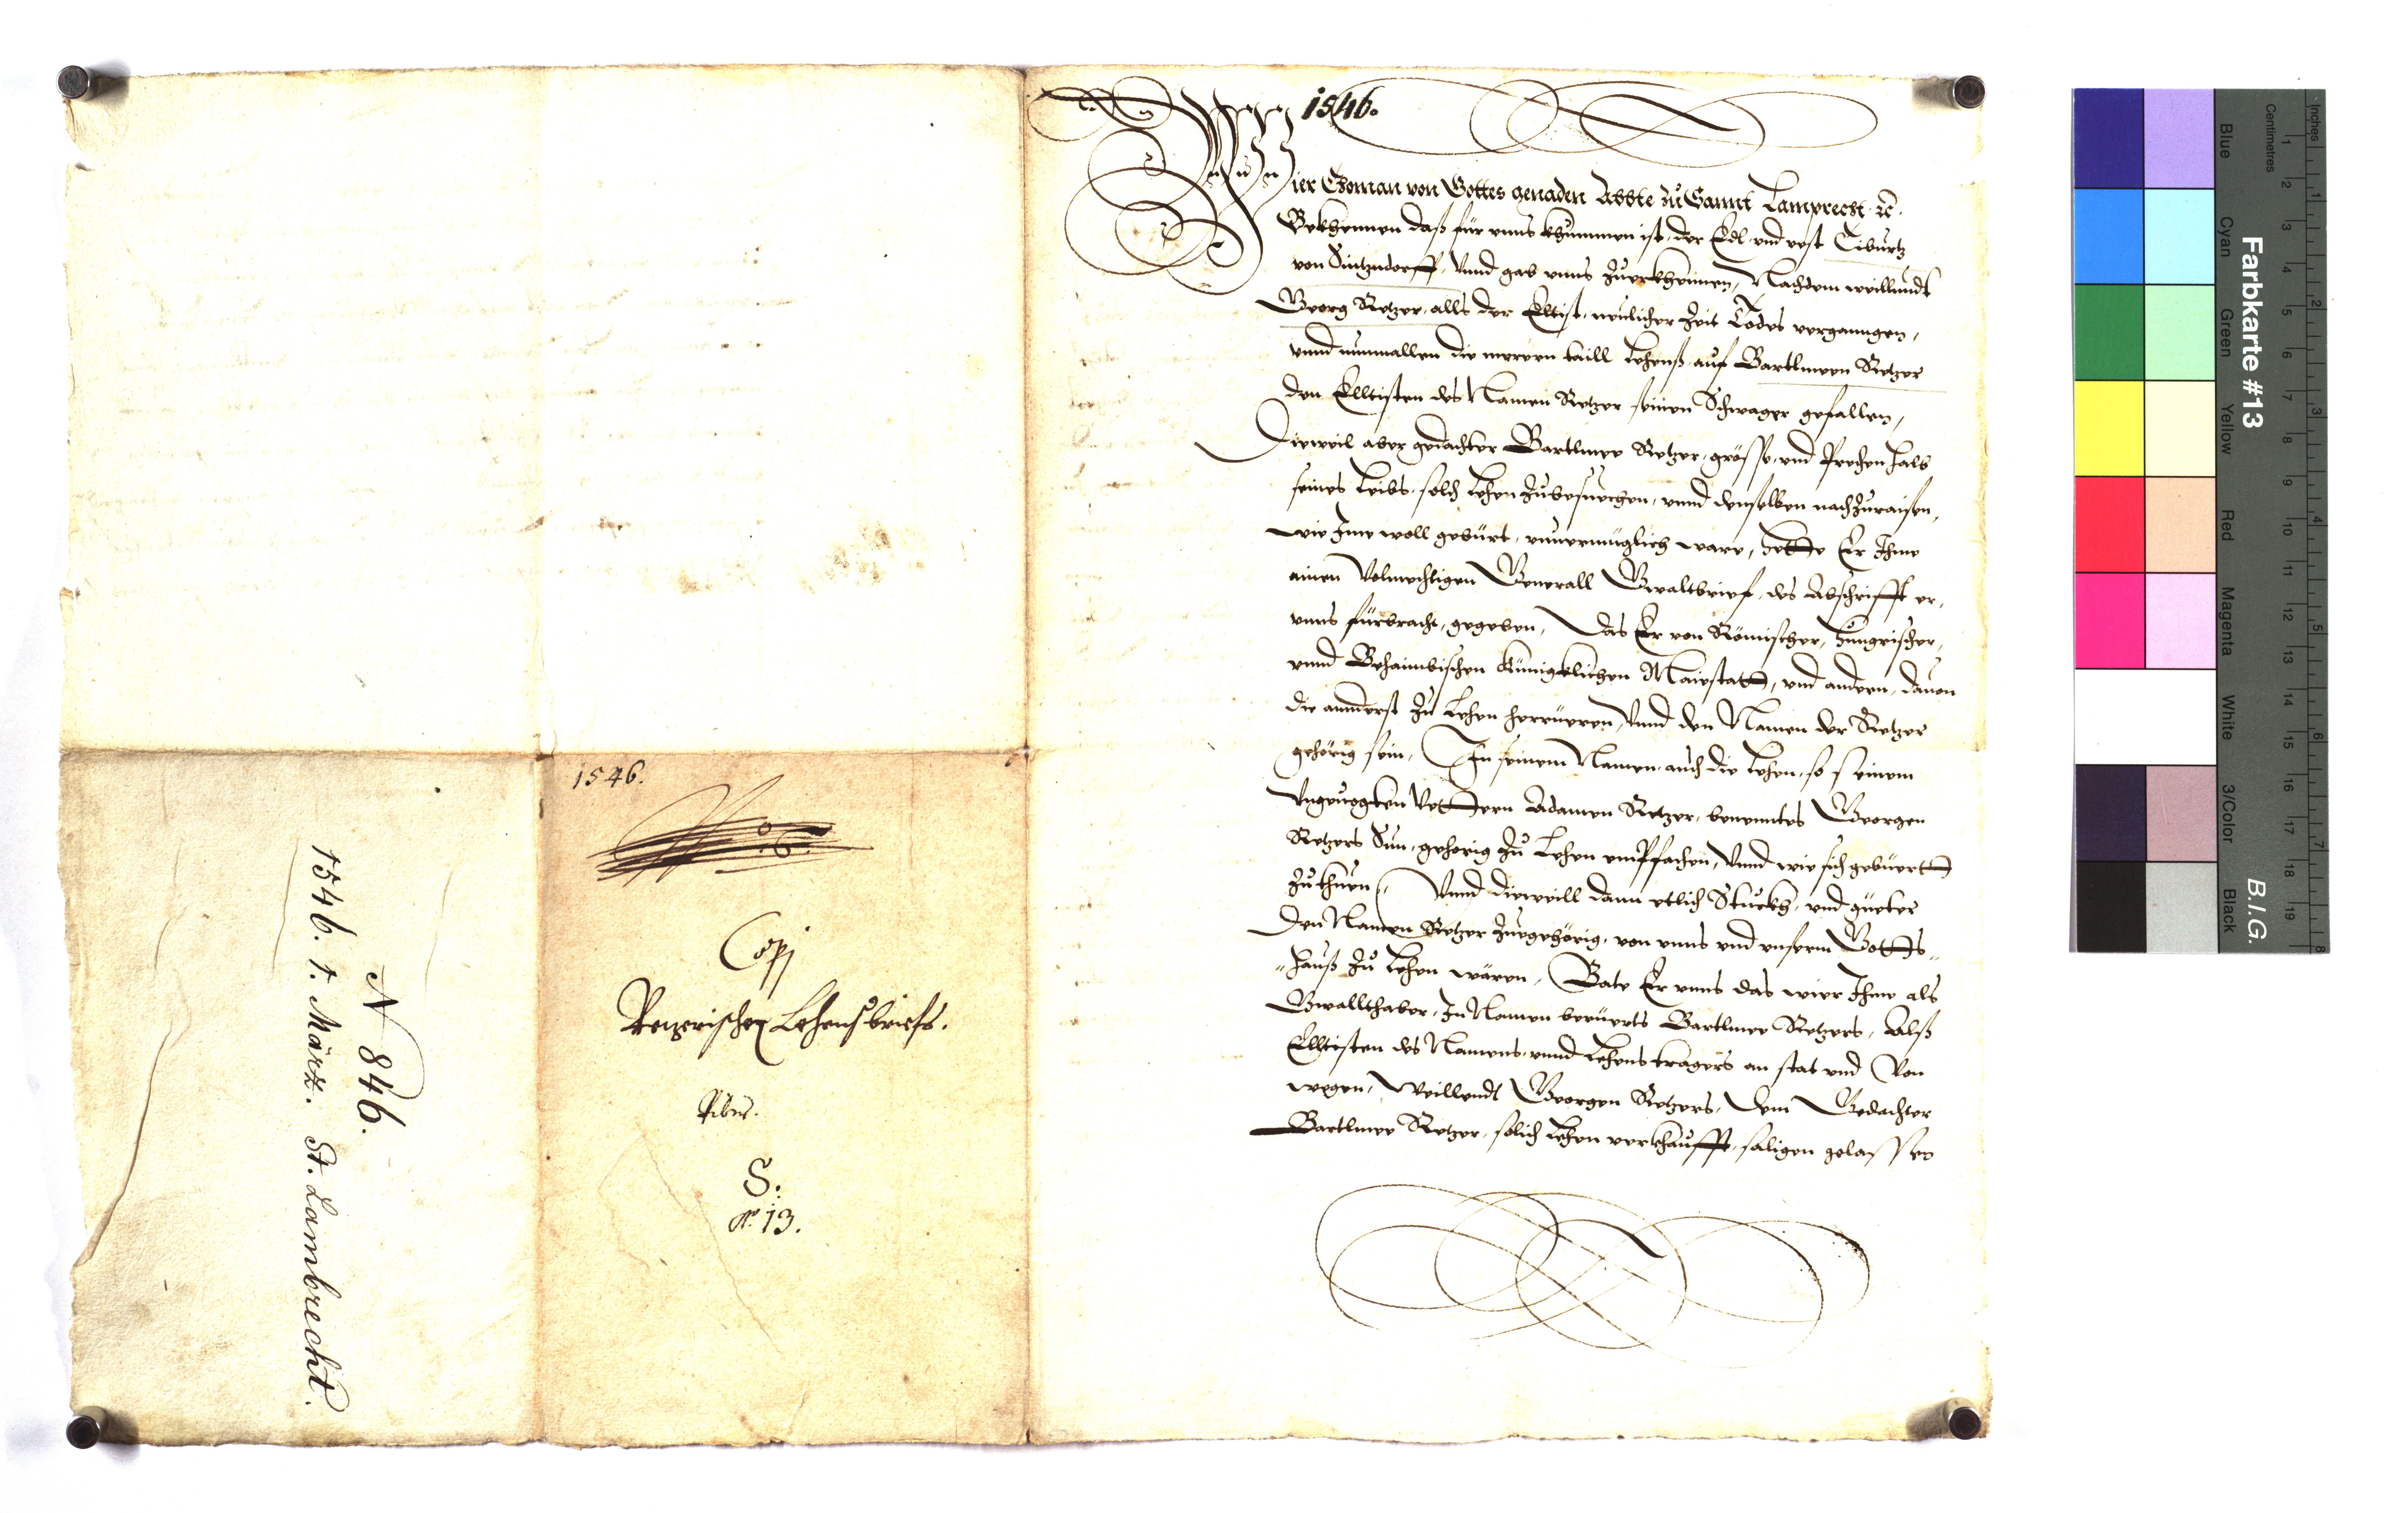 1546.
Wier Thoman von Gottes genaden Abbte zu Sannt Lamprecht ꝛc.
Bekhennen daß für unns khummen ist, der Edl und vest Tiburtz
von Sintzndorff, Vnnd gab unns Zuerkhennen, Nachdem weillundt
Georg Retzer, alls der Eltist, neulicher Zeit Todes verganngen,
vnnd nunmallen die merern taill Lehenß auf Bartlmeen Retzer
den Elltisten des Namen Retzer seinen Schwager gefallen,
Dieweil aber gedachter Bartlmee Retzer, grösse und Prechen halb
seines Leibs, solch Lehen Zubesuechen, vnnd denselben nachZuraisen,
wie Ime woll gebürt, unvermüglich ware, hette Er Ihme
ainen Volmechtigen Generall Gwaltbrief, des Abschrifft er,
vnns fürbracht, gegeben, Das Er von Römischer, Hungrischer,
vnnd Behaimbischen Künigklichen Maiestatt, und andern, dauon
die annderst Zu Lehen herrüeren, Vnnd den Namen der Retzer
gehörig sein, In seinem Namen, auch die Lehen, so seinem
Vngeuogten Vettern Adamen Retzer, benenntes Georgen
Retzers Sun, gehorig Zu Lehen empfachen, Vnnd wie sich gebüertt
Zuthuen, Vnnd dieweill dann etlich Stuckh, und güeter
den Namen Retzer Zuegehörig, von unns und unserm Gotts„
„hauß Zu Lehen wären, Bate Er unns das wier Ihme als
Gwallthaber, In Namen berüerts Bartlmee Retzers, Alß
Elltisten des Namens, vnnd Lehenstragers an stat und Von
wegen, Weillendt Georgen Retzers, dem Gedachter
Bartlmee Retzer, solich Lehen verkhaufft, säligen gelassner
1546.
Copj
Retzerischen Lehensbriefs.
S:
N° 13.
N 846.
1546. 1. März. St. Lambrecht.
Farbkarte #13
B.I.G.
Inches
Centimetres
Blue
Cyan
Green
Yellow
Red
Magenta
White
3/Color
Black
1 2 3 4 5 6 7 8 9 10 11 12 13 14 15 16 17 18 19
1 2 3 4 5 6 7 8